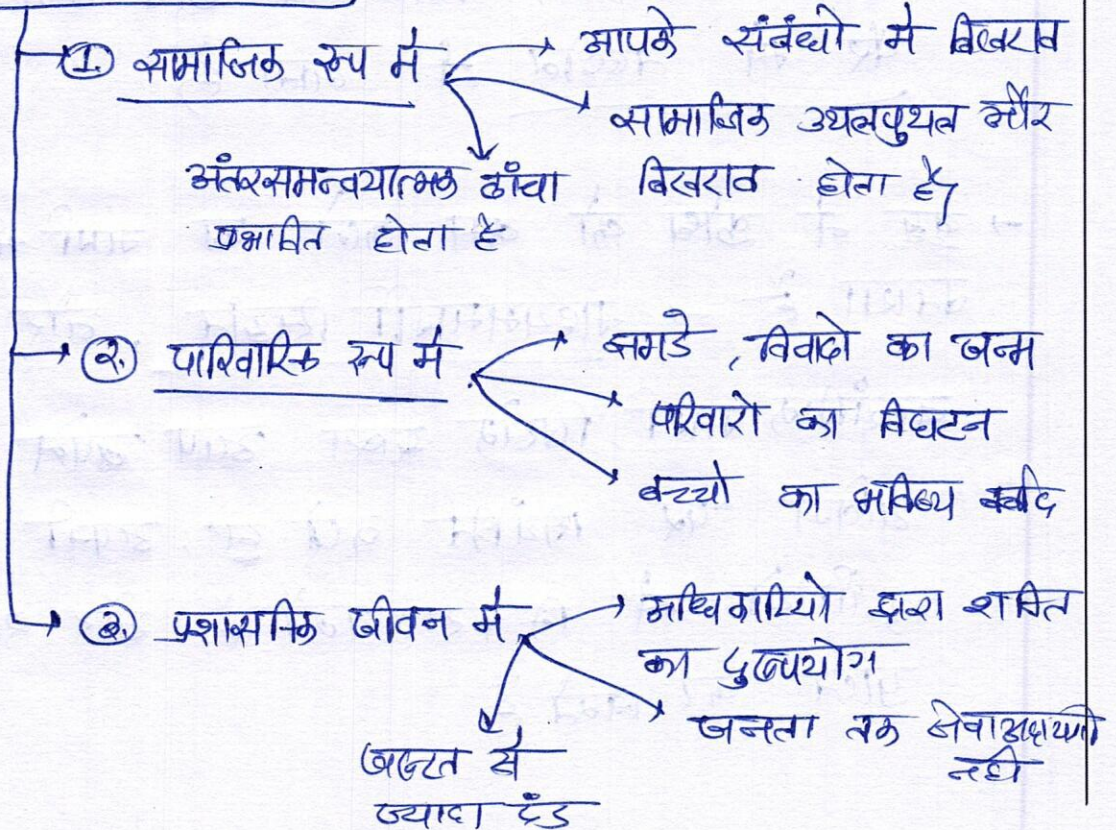 ①. सामाजिक रूप में
आपके संबंधो मे बिखराव
सामाजिक उथलपुथल और
बिखराव होता है,
अंतरसमन्वयात्मक ढांचा
प्रभावित होता है
②. पारिवारिक रूप में
झगडे, विवादो का जन्म
परिवारो का विघटन
बच्चो का भविष्य बर्बाद
③. प्रशासनिक जीवन में
अधिकारियो द्वारा शक्ति
का दुरुपयोग
जनता तक सेवा अदायगी
नही
जरूरत से
ज्यादा दंड